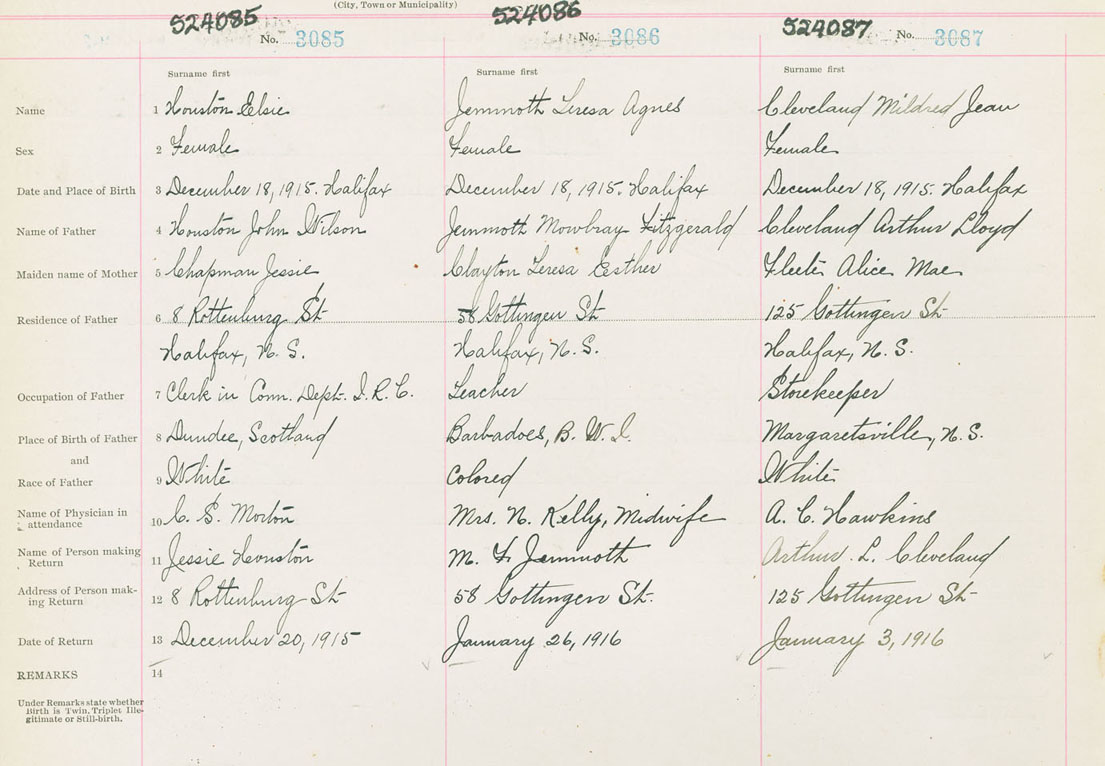 (City, Town or Municipality)
524085 524086 524087
No. 3085 No. 3086 No. 3087
Surname first Surname first Surname first
Name 1 Houston Elsie Jemmoth Teresa Agnes Cleveland Mildred Jean
Sex 2 Female Female Female
Date and Place of Birth 3 December 18, 1915. Halifax December 18, 1915. Halifax December 18, 1915. Halifax
Name of Father 4 Houston John Wilson Jemmoth Mowbray Fitzgerald Cleveland Arthur Lloyd
Maiden name of Mother 5 Chapman Jessie Clayton Teresa Esther Alice Mae
Residence of Father 6 8 Rottenburg St 58 Gottingen St 125 Gottingen St
Halifax, N. S. Halifax, N. S. Halifax, N. S.
Occupation of Father 7 Clerk in Conn. Dept. I. R. C. Teacher Storekeeper
Place of Birth of Father 8 Dundee, Scotland Barbadoes, B. W. I. Margaretsville, N. S.
and
Race of Father 9 White Colored White
Name of Physician in attendance 10 C. S. Morton Mrs. N. Kelly, Midwife A. C. Hawkins
Name of Person making Return 11 Jessie Houston M. F. Jemmoth Arthur. L. Cleveland
Address of Person mak-
ing Return 12 8 Rottenburg St 58 Gottingen St. 125 Gottingen St
Date of Return 13 December 20, 1915 January 26, 1916 January 3, 1916
REMARKS 14
Under Remarks state whether
Birth is Twin, Triplet Ille-
gitimate or Still-birth.